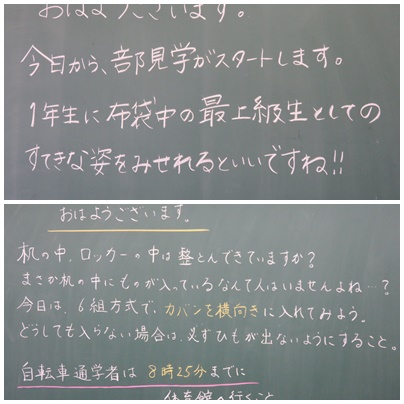 おはようございます。
今日から、部見学がスタートします。
1年生に布袋中の最上級生としての
すてきな姿をみせれるといいですね!!
おはようございます。
机の中、ロッカーの中は整とんできていますか?
まさか机の中にものが入っているなんて人はいませんよね…?
今日は、6組方式で、カバンを横向きに入れてみよう。
どうしても入らない場合は、必ずひもが出ないようにすること。
自転車通学者は 8時25分までに
体育館へ行くこと